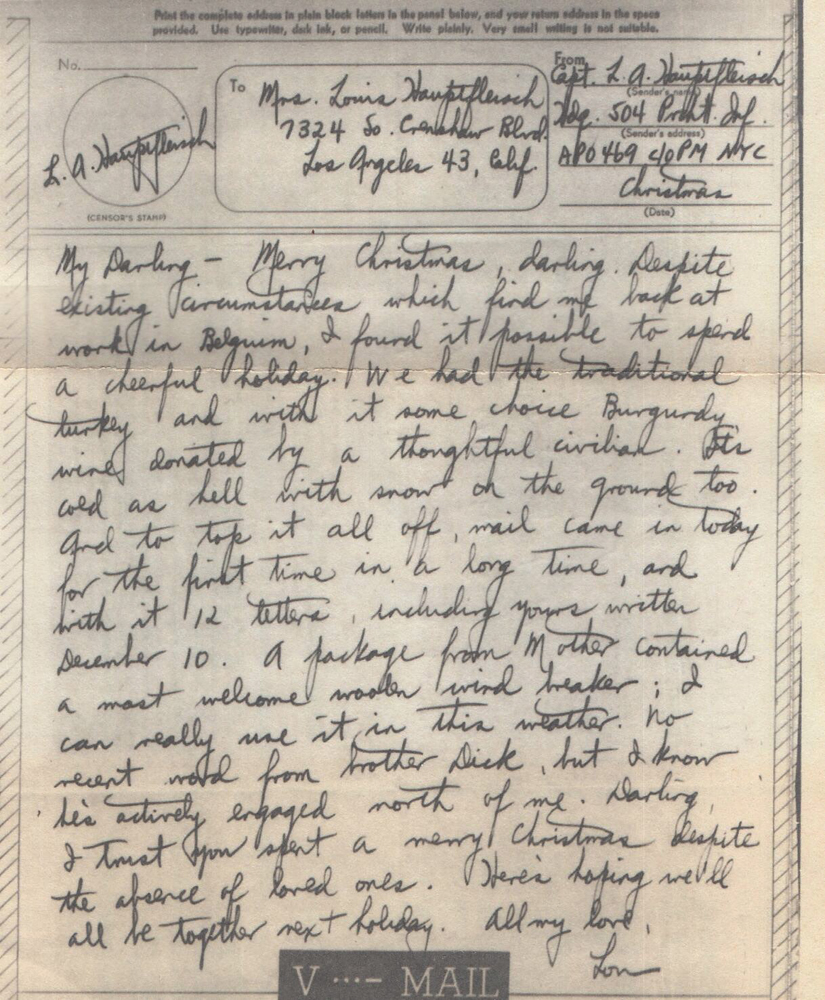 Print the complete address in plain block letters in the panel below, and your return address in the space
provided. Use typewriter, dark ink, or pencil. Write plainly. Very small writing is not suitable.
No.
To
Mrs. Louis Hauptfleisch
7324 So. Crenshaw Blvd.
Los Angeles 43, Calif.
From
Capt. L. A. Hauptfleisch
(Sender's name)
Hdq. 504 Prcht. Inf.
(Sender's address)
APO 469 c/o PM NYC
Christmas
(Date)
L. A. Hauptfleisch
(CENSOR'S STAMP)
My Darling – Merry Christmas, darling. Despite
existing circumstances which find me back at
work in Belguim, I found it possible to spend
a cheerful holiday. We had the traditional
turkey and with it some choice Burgundy
wine donated by a thoughtful civilian. It's
cold as hell with snow on the ground too.
And to top it all off, mail came in today
for the first time in a long time, and
with it 12 letters, including yours written
December 10. A package from Mother contained
a most welcome woolen wind breaker; I
can really use it in this weather. No
recent word from brother Dick, but I know
he's actively engaged north of me. Darling,
I trust you spent a merry Christmas despite
the absence of loved ones. Here's hoping we'll
all be together next holiday. All my love,
Lou
V ···– MAIL